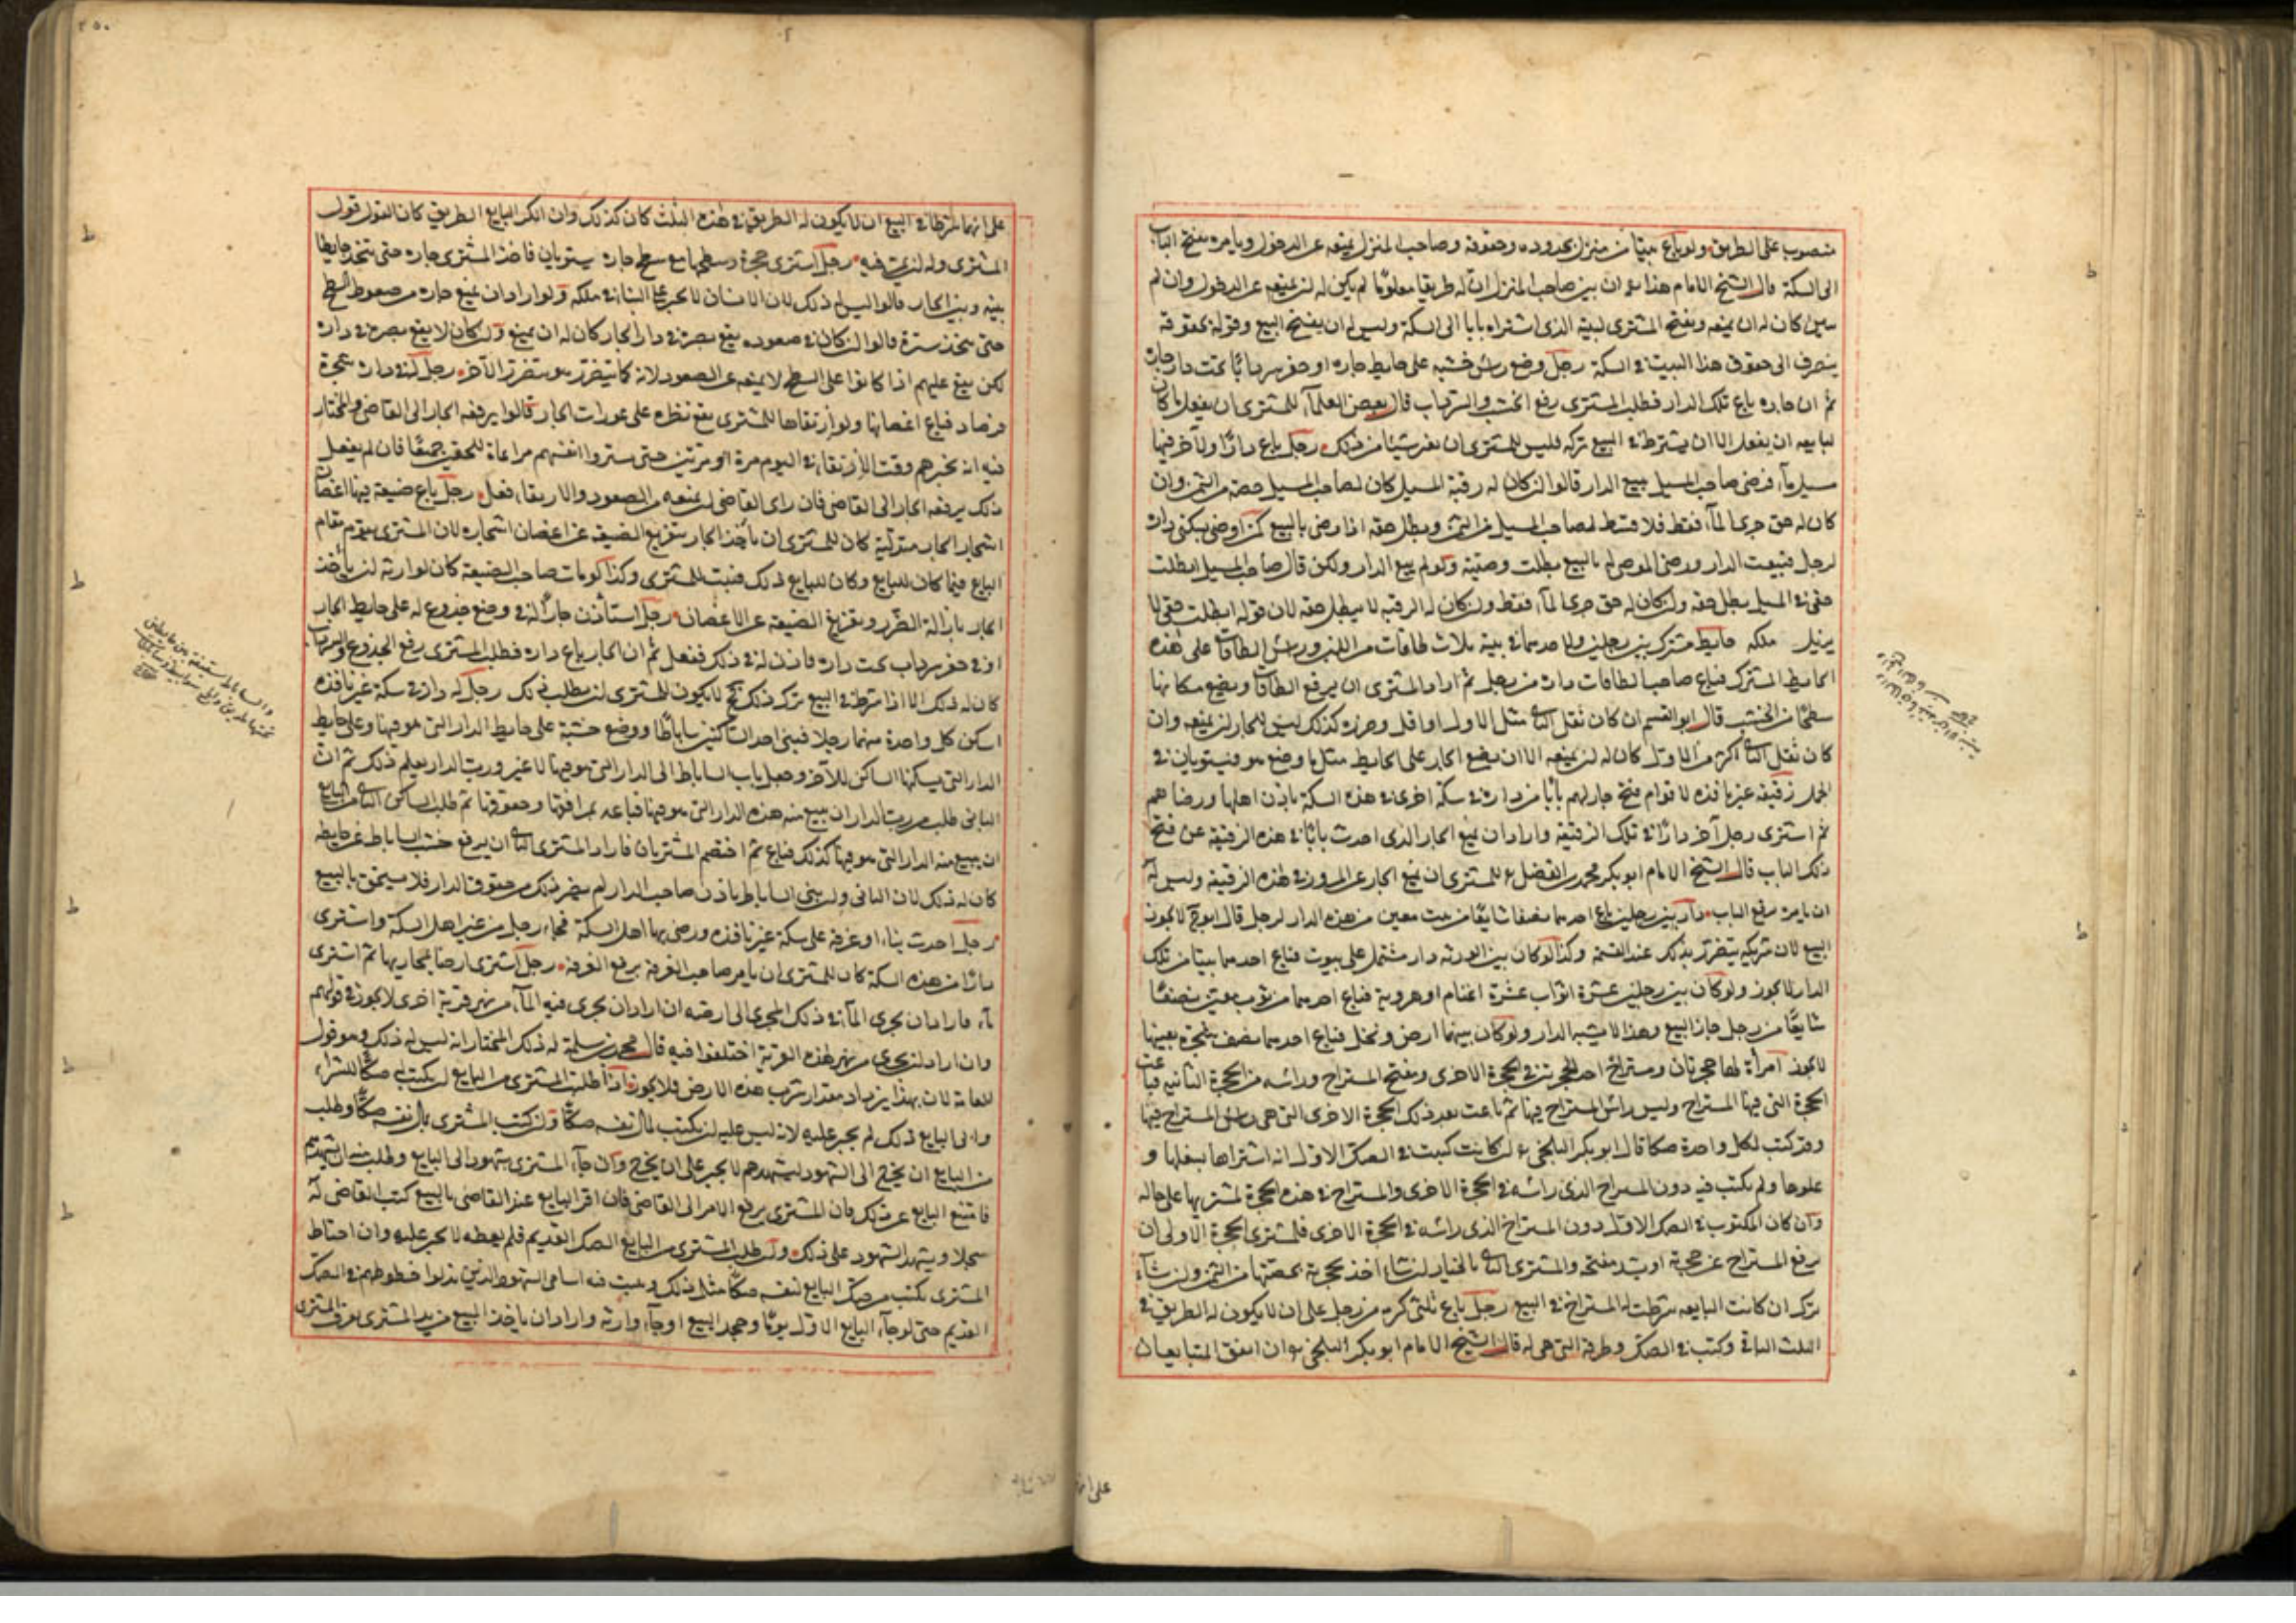 منصوب على الطريق ولو باع بيتا من منزل بحدوده وحقوقه وصاحب المنزل يمنعه عن الدخول ويامره بفتح الباب
الى السكة قال الشيخ الامام هذا ان بين صاحب المنزل ان له طريقا معلوما لم يكن له ان يمنعه عن الدخول وان لم
يبين كان له ان يمنعه ويفتح المشترى لبيته الذى اشتراه بابا الى السكة وليس له ان يفسخ البيع وقوله بحقوقه
ينصرف الى حقوق هذا البيت فى السكة رجل وضع راس خشبه على حايط جاره او حفر سردابا تحت دار جاره
ثم ان جاره باع تلك الدار فطلب المشترى رفع الخشب والسرداب قال بعض العلماء للمشترى ان يفعل ما كان
لبايعه ان يفعل الا ان يشترط فى البيع تركه فليس للمشترى ان يغير شيئا من ذلك رجل باع دارا ولاخر فيها
مسيل ماء فرضى صاحب المسيل ببيع الدار قالوا ان كان له رقبة المسيل كان لصاحب المسيل حصة من الثمن وان
كان له حق جرى الماء فقط فلا قسط لصاحب المسيل من الثمن وبطل حقه اذا رضى بالبيع كمن اوصى بسكنى داره
لرجل فبيعت الدار ورضى الموصى له بالبيع بطلت وصيته ولو لم يبع الدار ولكن قال صاحب المسيل ابطلت
حقى فى المسيل بطل حقه ان كان له حق جرى الماء فقط وان كان له الرقبة لا يبطل حقه لان قوله ابطلت حقى لا
يزيل ملكه حايط مشترك بين رجلين ولاحدهما فى بيته ثلاث طاقات من اللبن وراس الطاقات على هذه
الحايط المشترك فباع صاحب الطاقات داره من رجل ثم اراد المشترى ان يرفع الطاقات ويضع مكانها
سطحا من الخشب قال ابو القسم ان كان ثقل الثانى مثل الاول او اقل وحرزه كذلك ليس للجار ان يمنعه وان
كان ثقل الثانى اكثر من الاول كان له ان يمنعه الا ان يضع الجار على الحايط مثل ما وضع هو فيستويان فى
الحمل زقيقة غير نافذه لاقوام فتح جار لهم بابا من داره فى سكة اخرى فى هذه السكة باذن اهلها ورضاهم
ثم اشترى رجل آخر دارا فى تلك الزقيقة واراد ان يمنع الجار الذى احدث بابا فى هذه الزقيقة عن فتح
ذلك الباب قال الشيخ الامام ابو بكر محمد بن الفضل للمشترى ان يمنع الجار عن المرور فى هذه الزقيقة وليس له
ان يامره برفع الباب دار بين رجلين باع احدهما نصفا شايعا من بيت معين من هذه الدار لرجل قال ابو ح لا يجوز
البيع لان شريكه يتضرر بذلك عند القسمة وكذا لو كان بين الورثة دار مشتمل على بيوت فباع احدهما بيتا من تلك
الدار لا يجوز ولو كان بين رجلين عشرة اثواب عشرة اغنام او هروية فباع احدهما من ثوب معين نصفا
شايعا من رجل جاز البيع وهذا لا يشبه الدار ولو كان بينهما ارض ونخل فباع احدهما نصف شجرة بعينها
لا يجوز امرأة لها حجرتان ومستراح احد الحجرتين فى الحجرة الاخرى ومفتح المستراح وراسه من الحجرة الثانيه فباعت
الحجرة التى فيها المستراح وليس راس المستراح فيها ثم باعت بعد ذلك الحجرة الاخرى التى هى راس المستراح فيها
وقد كتب لكل واحدة صكا قال ابو بكر البلخى ان كانت كتبت فى الصك الاول انه اشتراها بسفلها و
علوها ولم يكتب فيه دون المستراح الذى راسه فى الحجرة الاخرى والمستراح فى هذه الحجرة لمشتريها على حاله
وان كان المكتوب فى الصك الاول دون المستراح الذى راسه فى الحجرة الاخرى فلمشترى الحجرة الاولى ان
يرفع المستراح عن حجرته او يسد مفتحه والمشترى الثانى بالخيار ان شاء اخذ حجرته بحصتها من الثمن وان شاء
ترك ان كانت البايعه شرطت له المستراح فى البيع رجل باع ثلثى كرمه من رجل على ان لا يكون له الطريق فى
الثلث الباقى وكتب فى الصك وطرقه التى هى له قال الشيخ الامام ابو بكر البلخى ان اتفق المتبايعان
على انهما
على انهما شرطا فى البيع ان لا يكون له الطريق فى هذه الثلث كان كذلك وان انكر البايع الطريق كان القول قول
المشترى وله ان يمر فيه رجل اشترى حجرة وسطحها مع سطح جاره يستويان فاخذ المشترى جاره حتى يتخذ حايطا
بينه وبين الجار قالوا ليس له ذلك لان الانسان لا يجبر على البناء فى ملكه ولو اراد ان يمنع جاره من صعود السطح
حتى يتخذ سترة قالوا ان كان فى صعوده يقع بصره فى دار الجار كان له ان يمنع وان كان لا يقع بصره فى داره
لكن يقع عليهم اذا كانوا على السطح لا يمنعه عن الصعود لانه كما يتضرر هو يتضرر الآخر رجل له فى داره شجرة
فرصاد فباع اغصانها ولو ارتقاها المشترى يقع نظره على عورات الجار قالوا يرفعه الجار الى القاضى والمختار
فيه انه يخبرهم وقت الارتقاء فى اليوم مرة او مرتين حتى يستروا انفسهم مراعاة للحقين جميعا فان لم يفعل
ذلك يرفعه الجار الى القاضى فان راى القاضى ان يمنعه من الصعود والارتقاء فعل رجل باع ضيعة فيها اغصان
اشجار الجار متدلية كان للمشترى ان ياخذ الجار بتفريغ الضيعة عن اغصان اشجاره لان المشترى يقوم مقام
البايع فيما كان للبايع وكان للبايع ذلك فيثبت للمشترى وكذا لو مات صاحب الضيعة كان لوارثه ان ياخذ
الجار بازالة الضرر وبتفريغ الضيعة عن الاغصان رجل استأذن جارا له فى وضع جذوع له على حايط الجار
او فى حفر سرداب تحت داره فاذن له فى ذلك ففعل ثم ان الجار باع داره فطلب المشترى رفع الجذوع والسرداب
كان له ذلك الا اذا شرط فى البيع ترك ذلك فح لا يكون للمشترى ان يطلب ذلك رجل له داران فى سكة غير نافذه
اسكن كل واحدة منهما رجلا فبنى احد الساكنين ساباطا ووضع خشبة على حايط الدار التى هو فيها وعلى حايط
الدار التى يسكنها الساكن الآخر وجعل باب الساباط الى الدار التى هو فيها لا غير ورب الدار يعلم ذلك ثم ان
البانى طلب من رب الدار ان يبيع منه هذه الدار التى هو فيها فباعه بمرافقها وحقوقها ثم طلب الساكن الثانى من البايع
ان يبيع منه الدار التى هو فيها كذلك فباع ثم اختصم المشتريان فاراد المشترى الثانى ان يرفع خشب الساباط عن حايطه
كان له ذلك لان البانى وان بنى الساباط باذن صاحب الدار لم يصر ذلك من حقوق الدار فلا يستحق بالبيع
رجل احدث بناء او غرفة على سكة غير نافذه ورضى بها اهل السكة فجاء رجل من غير اهل السكة واشترى
دارا من هذه السكة كان للمشترى ان يامر صاحب الغرفة برفع الغرفة رجل اشترى ارضا بمجاريها ثم اشترى
ماء فاراد ان يجرى الماء فى ذلك المجرى الى ارضه ان اراد ان يجرى فيه الماء من نهر قرية اخرى لا يجوز فى قولهم
وان اراد ان يجرى من نهر هذه القرية اختلفوا فيه قال محمد بن سلمة له ذلك المختار انه ليس له ذلك وهو قول
العامة لان بهذا يزداد مقدار شرب هذه الارض فلا يجوز اذا طلب المشترى من البايع ان يكتب له صكا للشراء
وابى البايع ذلك لم يجبر عليه لانه ليس عليه ان يكتب بمال نفسه صكا وان كتب المشترى بمال نفسه صكا وطلب
من البايع ان يخرج الى الشهود ليشهدهم لا يجبر على ان يخرج وان جاء المشترى بشهود الى البايع وطلب منه ان يشهدهم
فامتنع البايع عن ذلك فان المشترى يرفع الامر الى القاضى فان اقر البايع عند القاضى بالبيع كتب القاضى له
سجلا ويشهد الشهود على ذلك وان طلب المشترى من البايع الصك القديم فلم يعطه لا يجبر عليه وان احتاط
المشترى يكتب من صك البايع لنفسه صكا مثل ذلك ويثبت فيه اسامى الشهود الذين بذلوا خطوطهم فى الصك
القديم حتى لو جاء البايع الاول يوما وجحد البيع او جاء وارثه واراد ان ياخذ البيع من يد المشترى يعرف المشترى